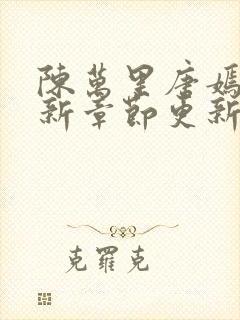 陳萬里唐嫣
新章節更新
克羅克